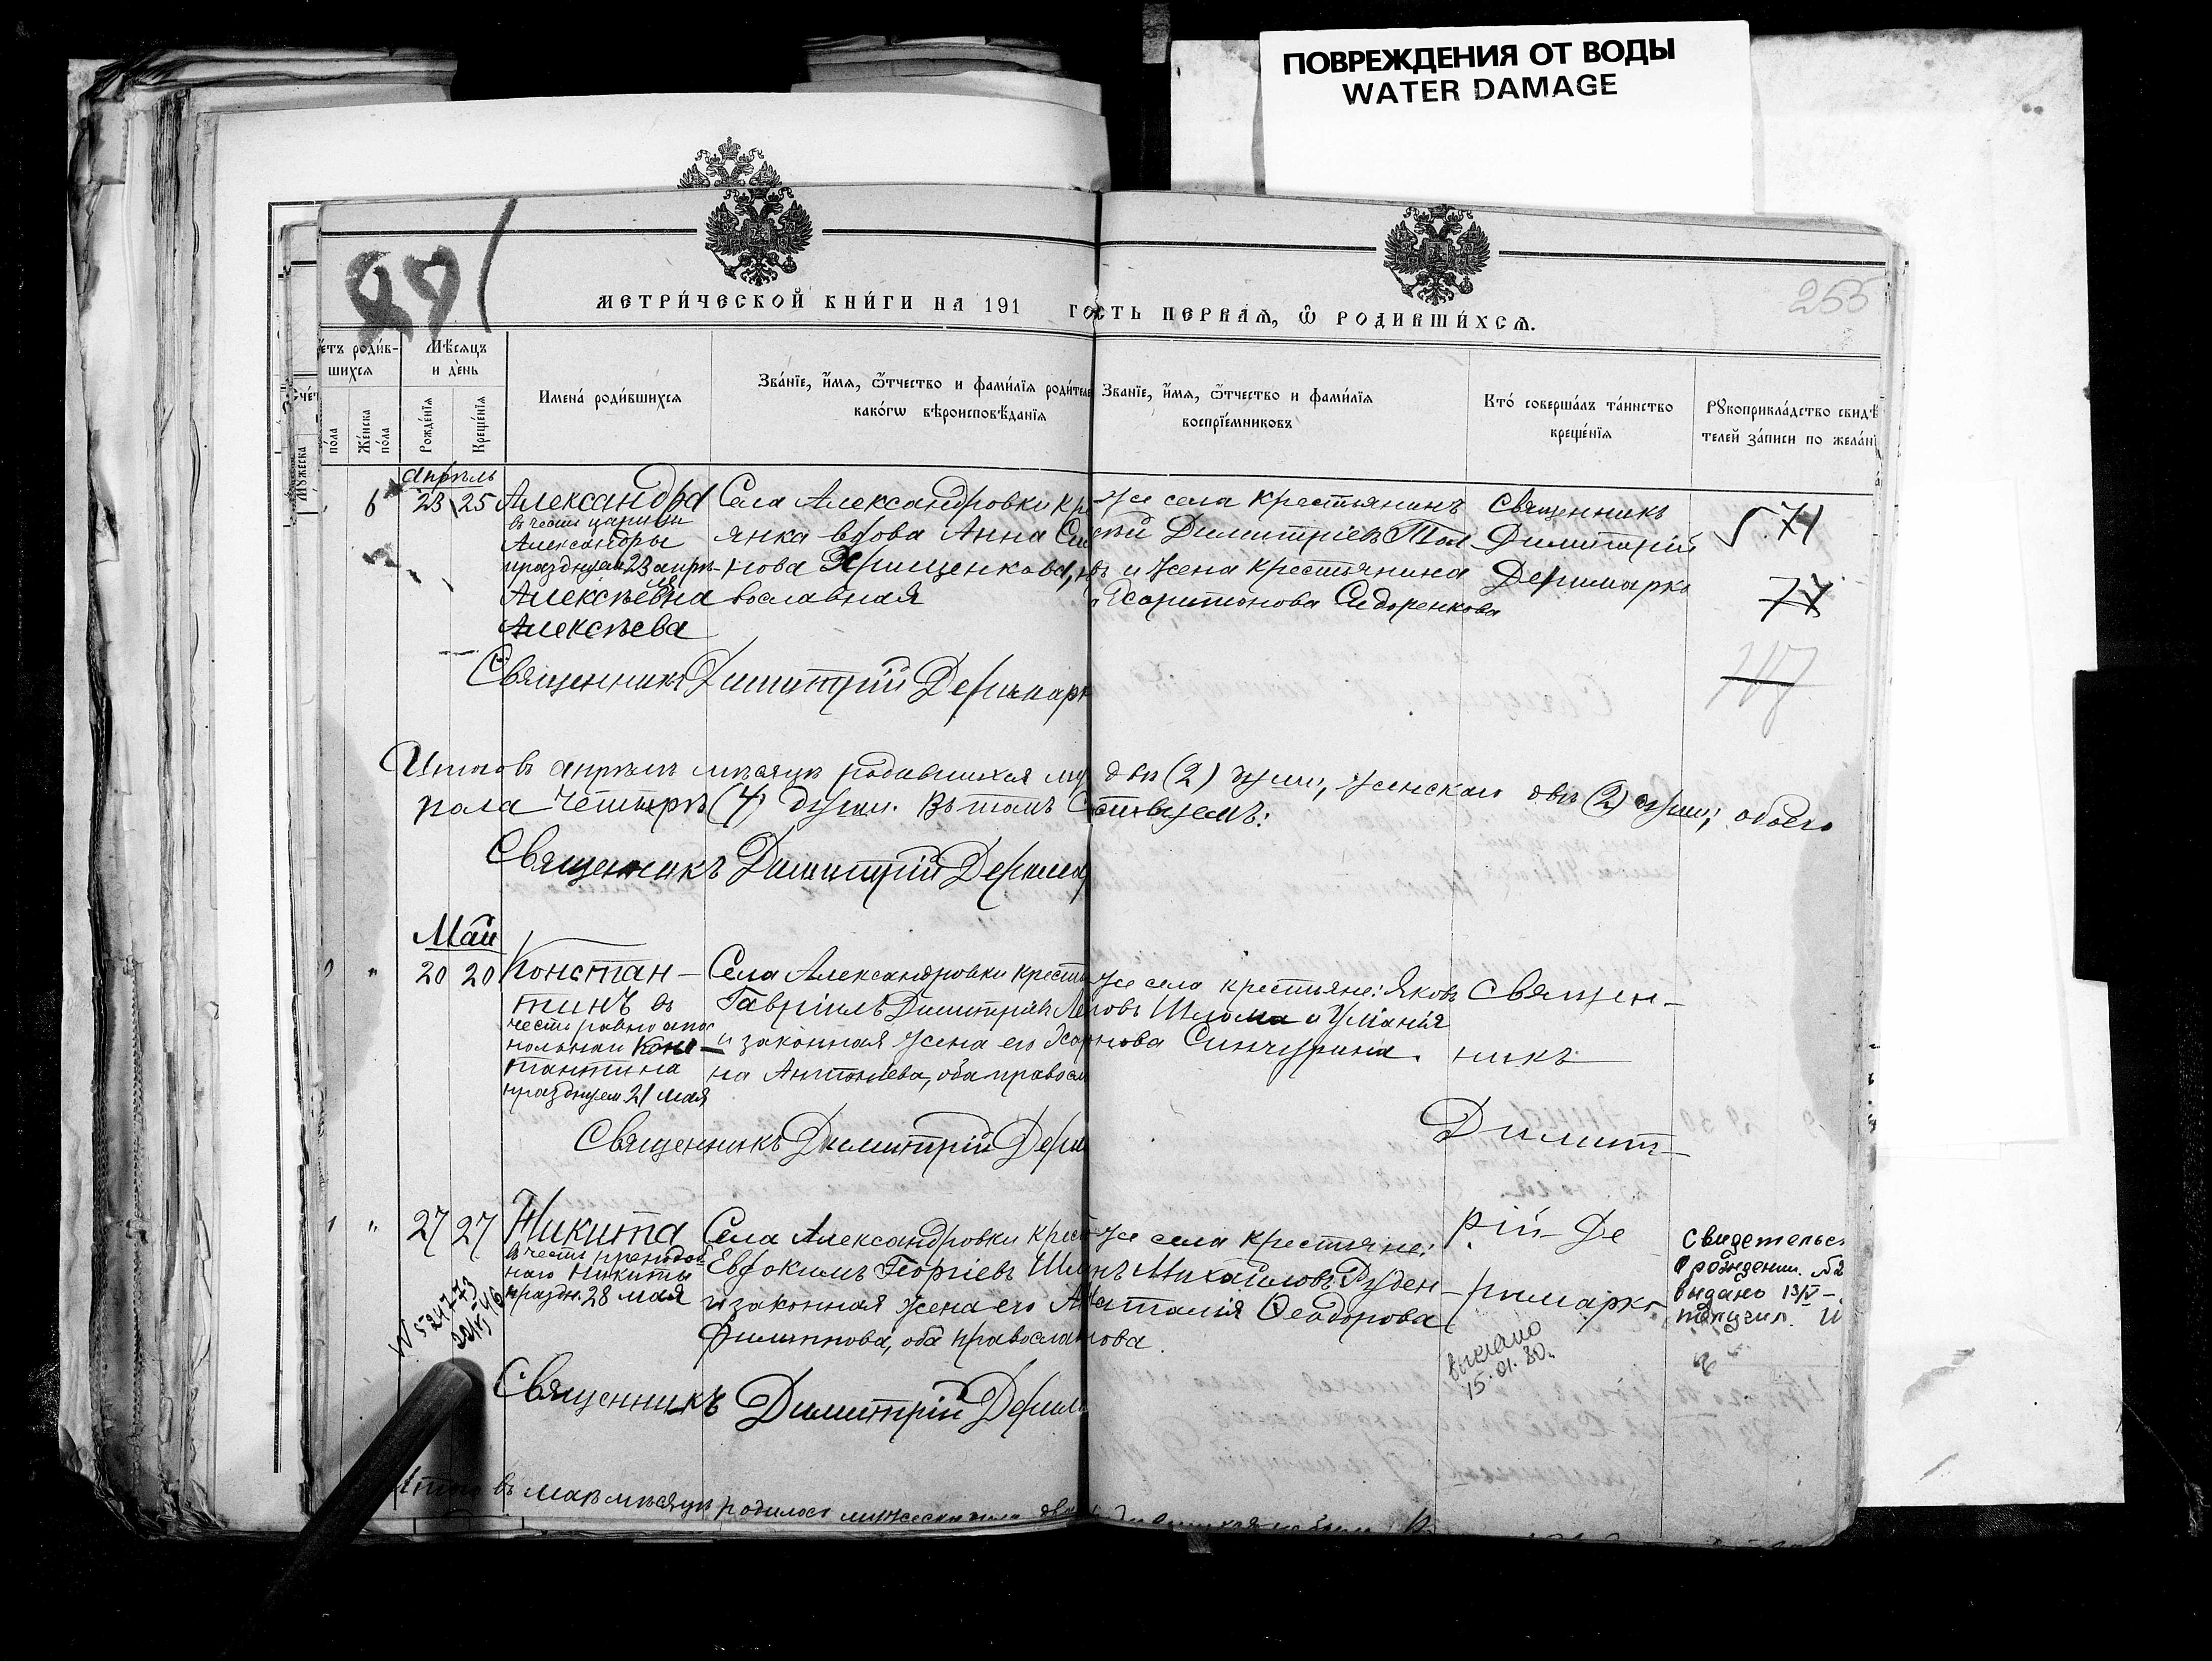 ПОВРЕЖДЕНИЯ ОТ ВОДЫ
WATER DAMAGE
255
МЕТРИ́ЧЕСКОЙ КНИ́ГИ НА 191
ГОСТЬ ПЕРВАѦ, Ѡ РОДИВШИ́ХСѦ.
ѣтъ роди́в-
шихсѧ
Мѣ́сѧцъ
и де́нь
Имена́ роди́вшихсѧ
Зва́нїе, и҆́мѧ, ѻ҆́тчество и фами́лїѧ роди́теле
како́гѡ вѣроисповѣ́данїѧ
Зва́нїе, и҆́мѧ, ѻ҆́тчество и фами́лїѧ
воспрїе́мниковъ
Кто́ соверша́лъ та́инство
креще́нїѧ
Рꙋкоприкла́дство свидѣ́
телей за́писи по жела́нї
Мꙋ́жеска
по́ла
Же́нска
по́ла
Рожде́нїѧ
Креще́нїѧ
Апрѣль
6 23 25 Александра
въ честь царицы
Александры
празднуем 23 апр-
Алексѣевна
Алексѣева
Села Александровки кр
янка вдова Анна Си
нова Хрищенкова,
вославная
же села крестьянинъ
Димитріевъ Тол
въ и жена крестьянина
Харитонова Сидоренкова
Священникъ
Димитрій
Деримарко
71
77
Священникъ Димитрій Деримарк
Итого въ апрѣлѣ мѣсяцѣ родившихся му
две (2) души, женскаго двѣ (2) души; обоего
пола четыре (4) души. Въ томъ С
ствуемъ:
Священникъ Димитрій Держима
Май
20 20 Констан-
тинъ въ
честь равноапос
тольнаго Конс-
тантина
празднуем 21 мая
Села Александровки крест
Гавріилъ Димитріевъ
и законная жена его Хар
на Антоніева, оба правосл
же села крестьяне: Яковъ
новъ Шлома и
нова Синчурина.
Священ-
никъ
Димит-
рій Де
римарко
Священникъ Димитрій Дери
27 27 Никита
въ честь преподоб-
наго Никиты
праздн. 28 мая
Села Александровки крест
Евдокимъ Георгіевъ
и законная жена его
Филиппова, оба православ
же села крестьяне:
Михайловъ Руден-
Наталія Ѳеодорова
нова.
Свидетельс
о рождении. №
выдано 13/IV-
получил.
N 52473
выслано
15.01.80.
Священникъ Димитрій Дерим
Итого въ маѣ мѣсяцѣ родилось мужеска пола два